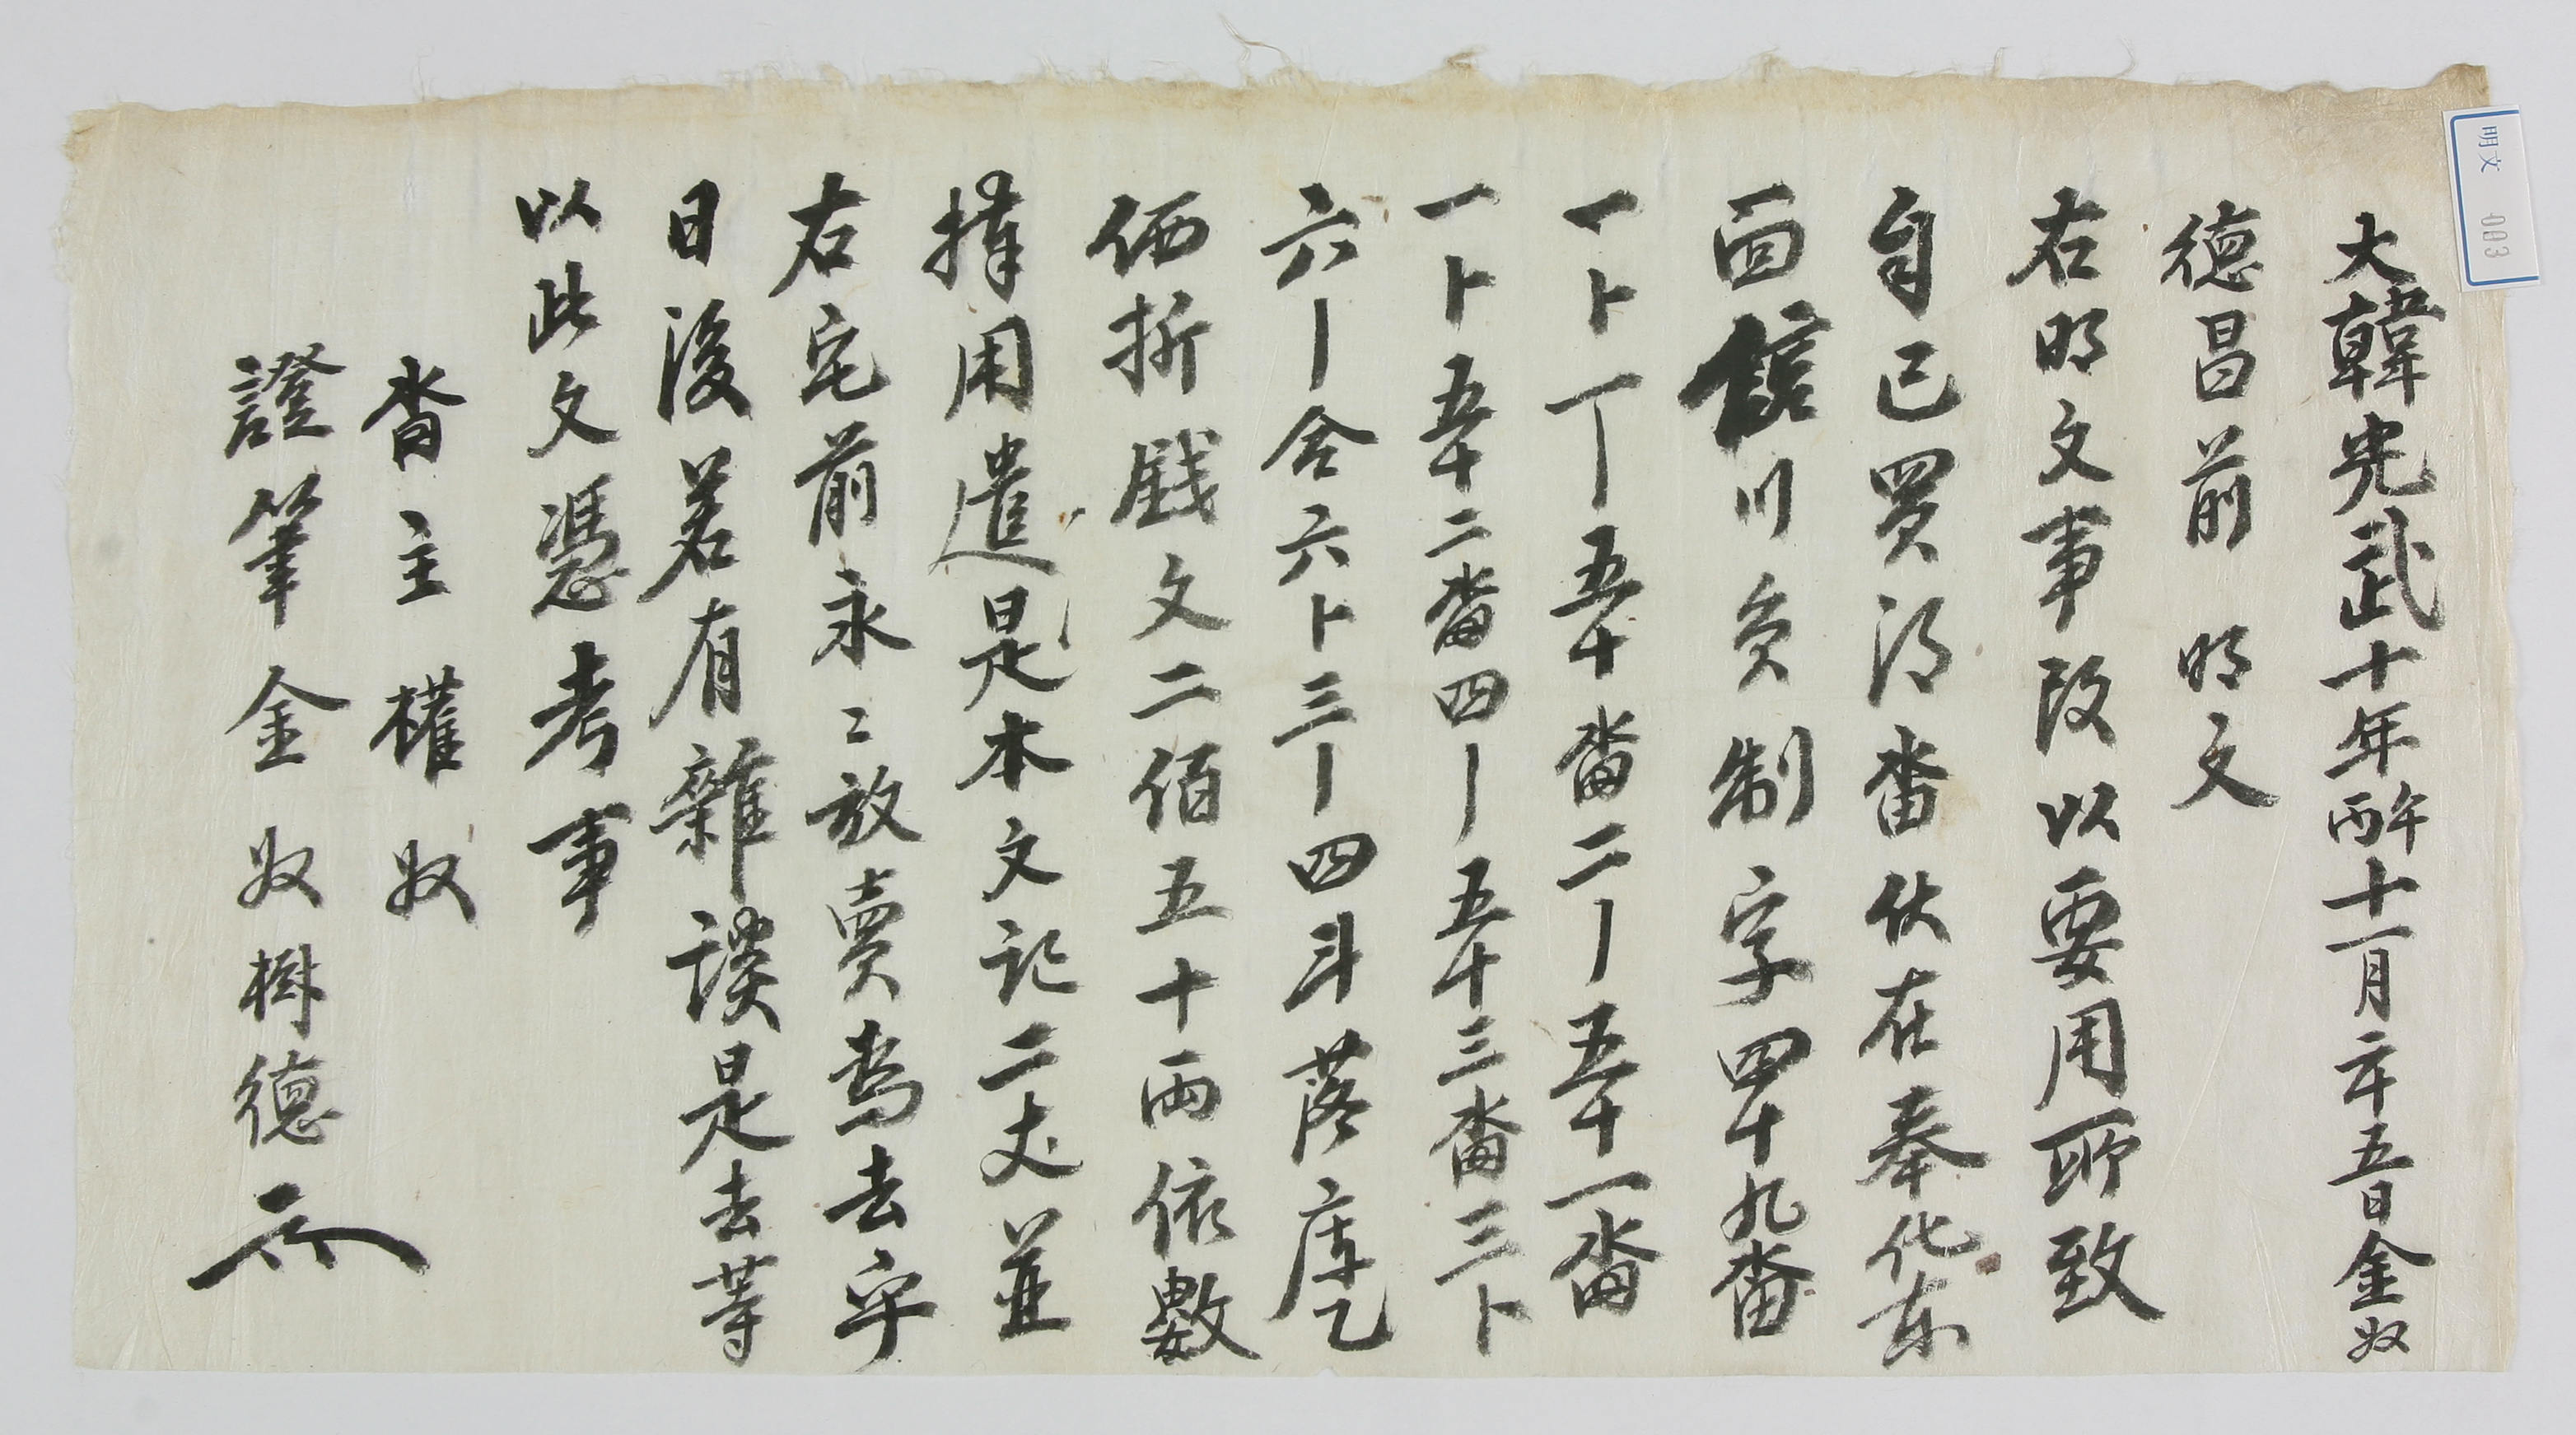 大韓光武十年丙午十一月二十五日金奴
德昌前 明文
右明文事段以要用所致
自己買得畓伏在奉化东
面信川员制字四十九畓
一卜一丨五十畓二丨五十一畓
一卜五十二畓四丨五十三畓三卜
六丨合六卜三丨四斗落庫乙
価折戝文二佰五十兩依數
捧用遣是本文記二丈並
右宅前永〻放賣爲去乎
日後若有雜談是去等
以此文憑考事
畓主 權奴
證筆 金奴 德
明文 003